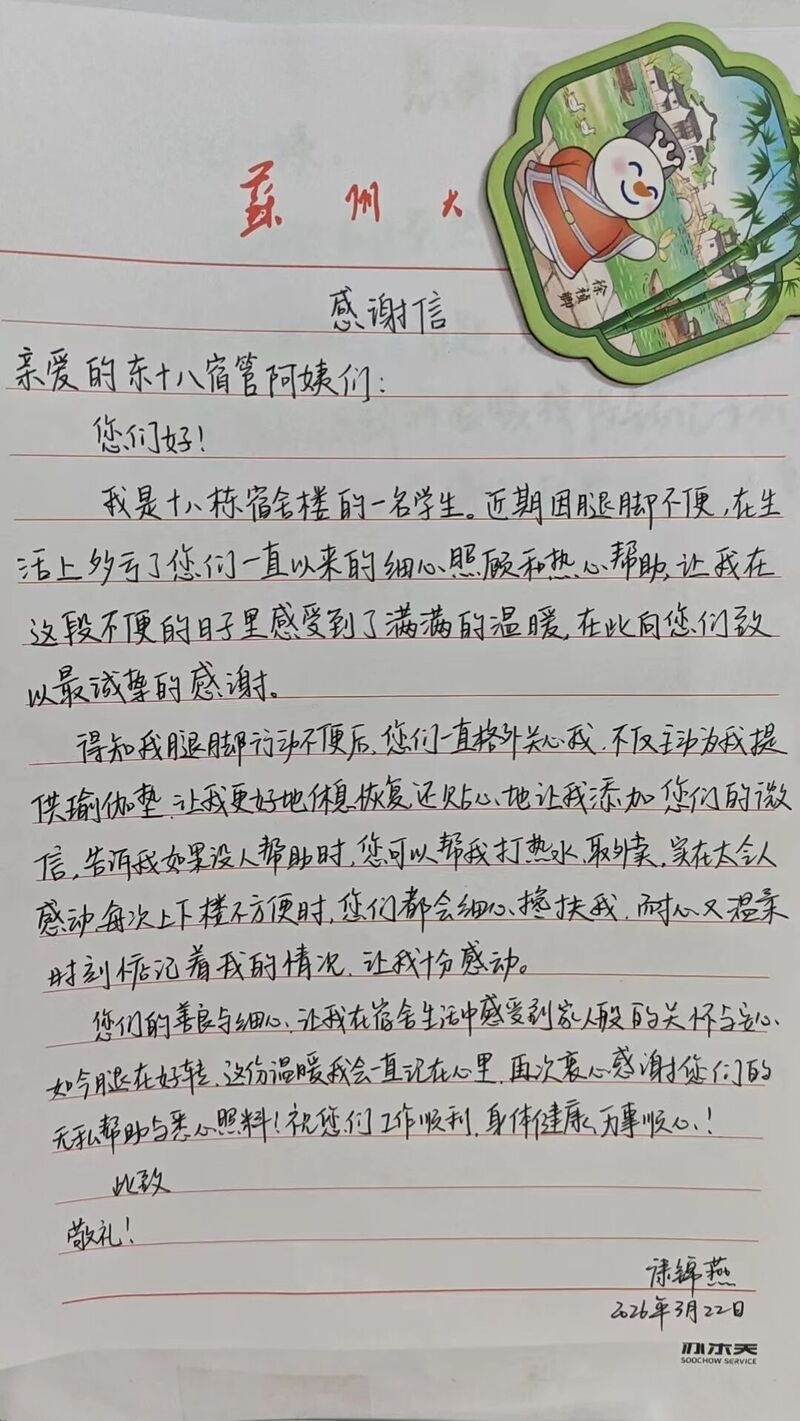 蘇州大
徐祯卿
感谢信
亲爱的东十八宿管阿姨们：
您们好！
我是十八栋宿舍楼的一名学生。近期因腿脚不便，在生
活上多亏了您们一直以来的细心照顾和热心帮助，让我在
这段不便的日子里感受到了满满的温暖，在此向您们致
以最诚挚的感谢。
得知我腿脚行动不便后，您们一直格外关心我，不仅主动为我提
供瑜伽垫，让我更好地休息恢复，还贴心地让我添加您们的微
信，告诉我如果没人帮助时，您可以帮我打热水，取外卖，实在太令人
感动，每次上下楼不方便时，您们都会细心搀扶我，耐心又温柔
时刻惦记着我的情况，让我十分感动。
您们的善良与细心，让我在宿舍生活中感受到家人般的关怀与安心、
如今腿在好转，这份温暖我会一直记在心里，再次衷心感谢您们的
无私帮助与悉心照料！祝您们工作顺利，身体健康，万事顺心！
此致
敬礼！
锦燕
2026年3月22日
苏大天
SOOCHOW SERVICE